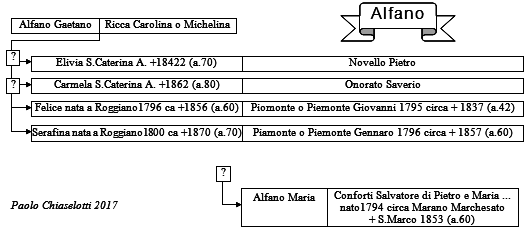 Alfano
Alfano Gaetano Ricca Carolina o Michelina
?
Elivia S.Caterina A. +18422 (a.70) Novello Pietro
?
Carmela S.Caterina A. +1862 (a.80) Onorato Saverio
Felice nata a Roggiano1796 ca +1856 (a.60) Piomonte o Piemonte Giovanni 1795 circa + 1837 (a.42)
Serafina nata a Roggiano1800 ca +1870 (a.70) Piamonte o Piemonte Gennaro 1796 circa + 1857 (a.60)
?
Alfano Maria
Conforti Salvatore di Pietro e Maria ...
nato1794 circa Marano Marchesato
+ S.Marco 1853 (a.60)
Paolo Chiaselotti 2017